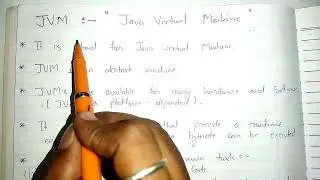 JVM :- "Java Virtual Machine"
* It is for Java virtual Machine.
* JVM an abstract machine
* JVMs available for many hardware and Software
( JVM is platform-dependent)
* It that provide a runtime
bytecode can be executed
main tasks:-
Code